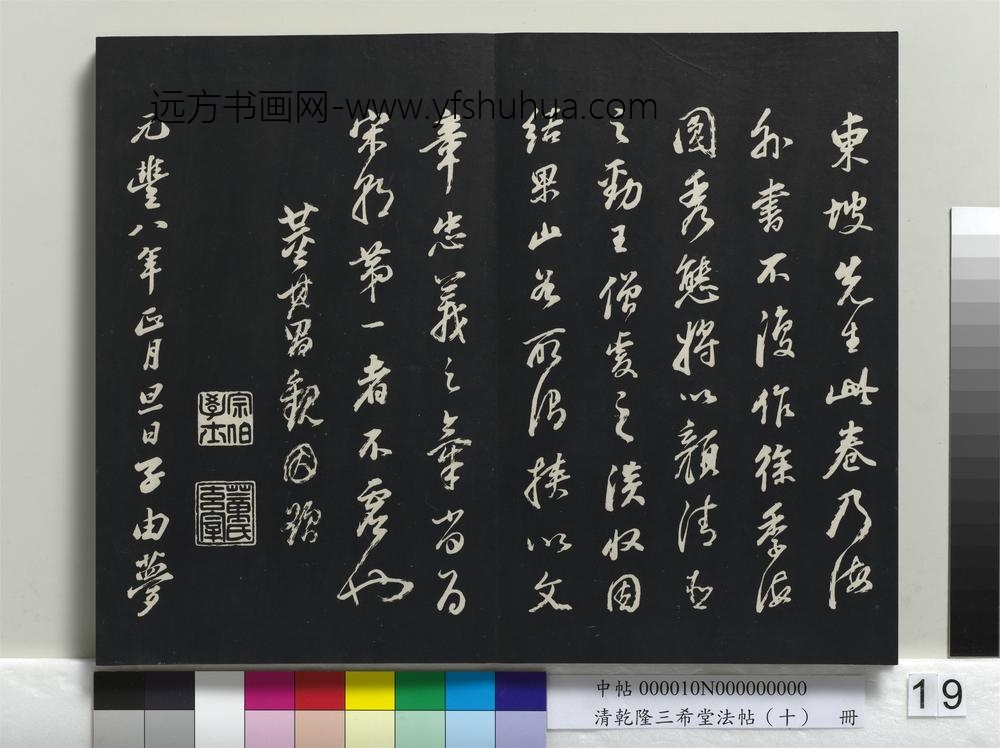 東坡先生此卷乃海
外書不復作徐季海
圓秀態將以顏清臣
之勁王僧虔之淡收因
結果山谷所謂挾以文
章忠義之氣當為
宋朝第一者不虛也
董其昌觀因題
宗伯學士
董氏玄宰
元豐八年正月旦日子由夢
远方书画网-www.yfshuhua.com
中帖 000010N000000000
清乾隆三希堂法帖（十） 冊
19